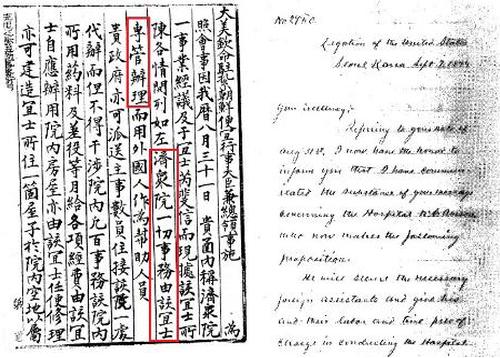 大美欽命駐劄朝鮮便宜行事大臣兼總領事施 爲
照會事因我曆八月三十一日 貴函內稱濟衆院
一事業經議及于宜士爲斐信而現據該宜士所
陳各情開列如左濟衆院一切事務由該宜士
專管辦理而用外國人作爲幫助人員
貴政府亦可派送主事數員住接該院一處
代辦而但不得干涉院內凡百事務該院內
所用藥料及差役等月給各項經費由該宜
士自應辦用院內房屋亦由該宜士任便修理
亦可建造宜士所住一箇屋子於院內空地以屬
Legation of the United States
Seoul Korea Sept 7
Your Excellency:
Referring to your note of
Aug 31st, I now have the honor to
inform you that I have communi-
cated the substance of your message
concerning the Hospital to Dr Avison
who now makes the following
proposition.
He will secure the necessary
foreign assistants and give his
and their labor and time free of
charge in conducting the Hospital.